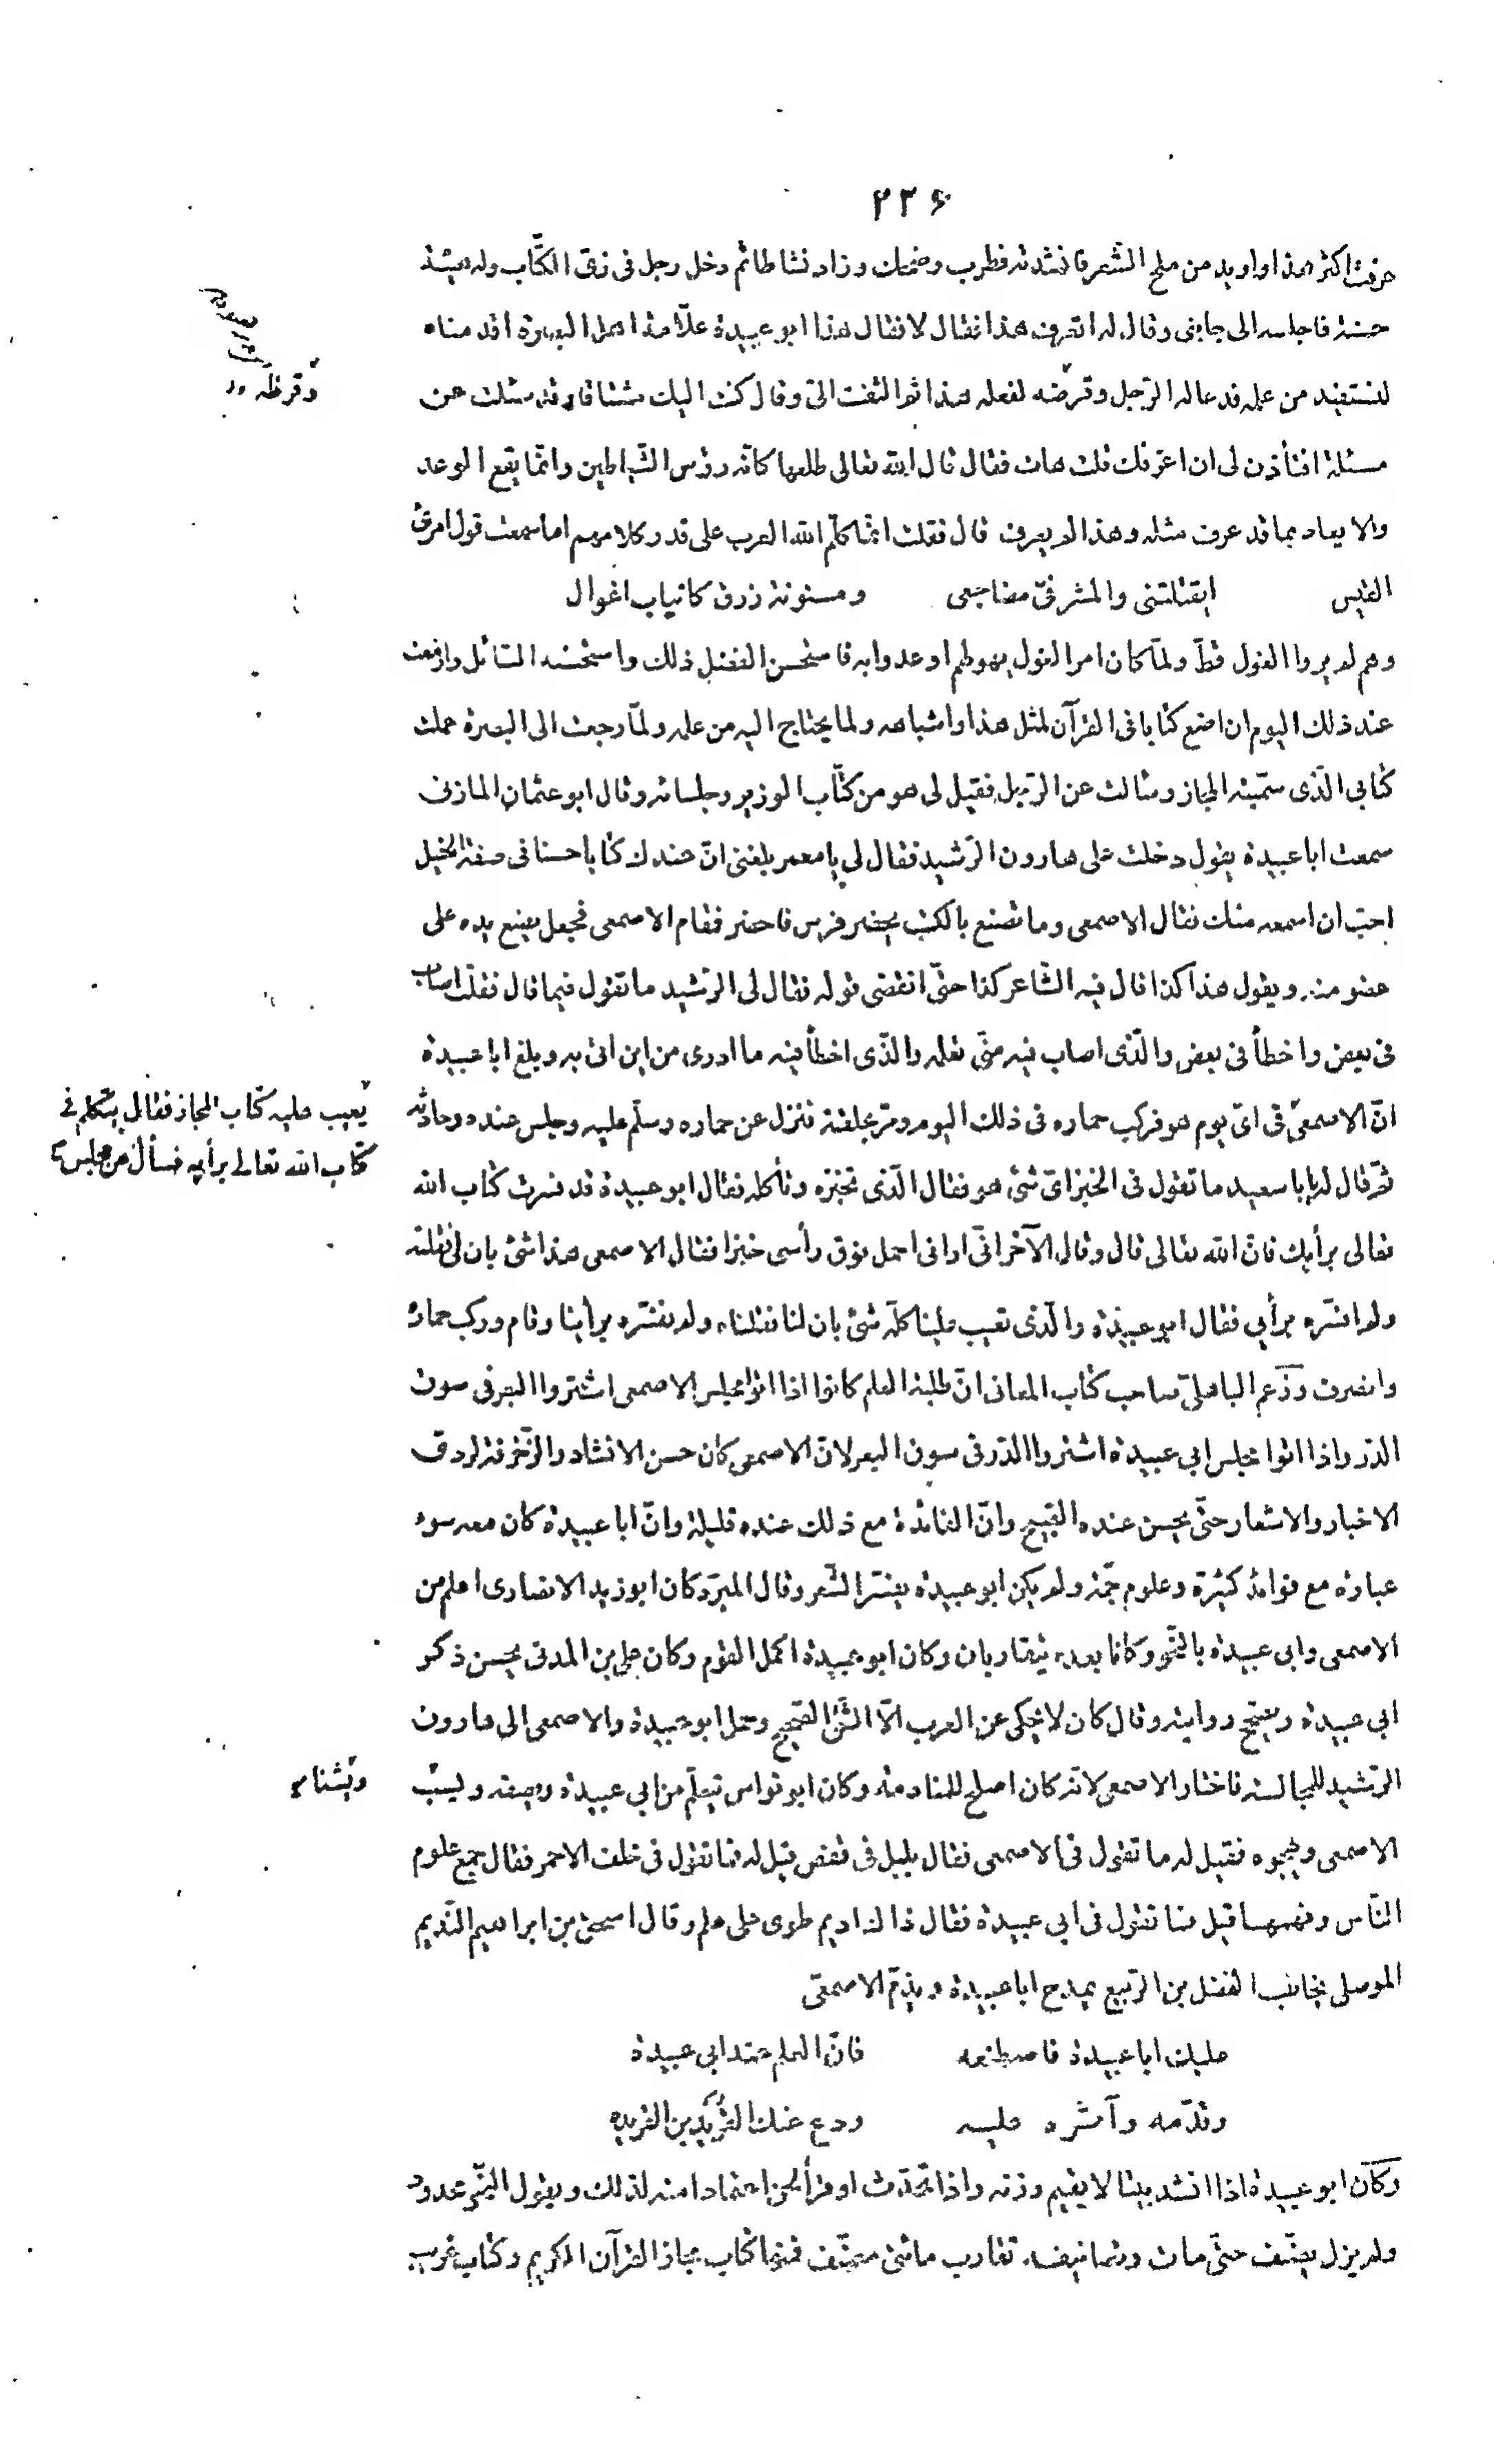 ٢٣۶
عرفت اكثر هذا واريد من ملح الشّعر فانشدته فطرب وضحك وزاد نشاطا ثم دخل رجل فى زىّ الكتّاب وله هيئة
حسنة فاجلسه الى جانبى وقال له اتعرف هذا فقال لا فقال هذا ابو عبيدة علّامة اهل البصرة اقدمناه
لنستفيد من علمه فدعا له الرّجل وقرّضه لفعله هذا ثم التفت الىّ وقال كنت اليك مشتاقا وقد سئلت عن
وقرظه
مسئلة افتأذن لى ان اعرّفك قلت هات فقال قال الله تعالى طلعها كأنّه رؤس الشّياطين وانّما يقع الوعد
والايعاد بما قد عرف مثله وهذا لم يعرف قال فقلت انّما كلّم الله العرب على قدر كلامهم اما سمعت قول امرئ
القيس ايقتلنى والمشرفىّ مضاجعى ومسنونة زرق كانياب اغوال
وهم لم يروا الغول قطّ ولمّا كان امر الغول يهولهم اوعدوا به فاستحسن الفضل ذلك واستحسنه السّائل وازمعت
عند ذلك اليوم ان اضع كتابا فى القرآن لمثل هذا واشباهه ولما يحتاج اليه من علمه ولمّا رجعت الى البصرة عملت
كتابى الّذى سمّيته المجاز وسألت عن الرّجل فقيل لى هو من كتّاب الوزير وجلسائه وقال ابو عثمان المازنى
سمعت ابا عبيدة يقول دخلت على هارون الرّشيد فقال لى يا معمر بلغنى انّ عندك كتابا حسنا فى صفة الخيل
احبّ ان اسمعه منك فقال الاصمعى وما تصنع بالكتب يحضر فرس فاحضر فقام الاصمعى فجعل يضع يده على
عضو منه ويقول هذا كذا قال فيه الشّاعر كذا حتّى انقضى قوله فقال لى الرّشيد ما تقول فيما قال فقلت اصاب
فى بعض واخطأ فى بعض والّذى اصاب فيه منّى تعلمه والّذى اخطأ فيه ما ادرى من اين اتى به وبلغ ابا عبيدة
انّ الاصمعىّ فى اىّ يوم هو فركب حماره فى ذلك اليوم ومرّ بحلقته فنزل عن حماره وسلّم عليه وجلس عنده وحادثه
يعيب عليه كتاب المجاز فقال يتكلم فى
كتاب الله تعالى برأيه فسأل عن مجلس
ثم قال له يا با سعيد ما تقول فى الخبز اىّ شئ هو فقال الّذى تخبزه وتأكله فقال ابو عبيدة قد فسرت كتاب الله
تعالى برأيك فانّ الله تعالى قال وقال الآخر انّى ارانى احمل فوق رأسى خبزا فقال الاصمعى هذا شئ بان لى فقلته
ولم افسّره برأيى فقال ابو عبيدة والّذى تعيب علينا كلّه شئ بان لنا فقلناه ولم نفسّره برأينا وقام وركب حماره
وانصرف وزعم الباهلىّ صاحب كتاب المعانى انّ طلبة العلم كانوا اذا اتوا مجلس الاصمعى اشتروا البعر فى سوق
الدّر واذا اتوا مجلس ابى عبيدة اشتروا الدّر فى سوق البعر لانّ الاصمعى كان حسن الانشاد والزّخرفة لردئ
الاخبار والاشعار حتّى يحسن عنده القبيح وانّ الفائدة مع ذلك عنده قليلة وانّ ابا عبيدة كان معه سوء
عبارة مع فوائد كثيرة وعلوم جمّة ولم يكن ابو عبيدة يفسّر الشّعر وقال المبرّد كان ابو زيد الانصارى اعلم من
الاصمعى وابى عبيدة بالنّحو وكانا بعده يتقاربان وكان ابو عبيدة اكمل القوم وكان على بن المدنى يحسن ذكر
ابى عبيدة ويصحّح روايته وقال كان لا يحكى عن العرب الّا الشّئ الصّحيح وحمل ابو عبيدة والاصمعى الى هارون
الرّشيد للمجالسة فاختار الاصمعى لانّه كان اصلح للمنادمة وكان ابو نواس يتعلّم من ابى عبيدة ويصفه ويسبّ
ويشناء
الاصمعى ويهجوه فقيل له ما تقول فى الاصمعى فقال بلبل فى قفص قيل له فما تقول فى خلف الاحمر فقال جمع علوم
النّاس وفهمها قيل فما تقول فى ابى عبيدة فقال ذاك اديم طوى على علم وقال اسحق بن ابراهيم النّديم
الموصلى يخاطب الفضل بن الرّبيع يمدح ابا عبيدة ويذمّ الاصمعىّ
عليك ابا عبيدة فاصطنعه فانّ العلم عند ابى عبيدة
وقدّمه وآثره عليه ودع عنك القريد بن القريده
وكان ابو عبيدة اذا انشد بيتا لا يقيم وزنه واذا تحدّث او قرأ لحن اعتمادا منه لذلك ويقول النّحو محدود
ولم يزل يصنّف حتّى مات وتصانيفه تقارب مائتى مصنّف فمنها كتاب مجاز القرآن الكريم وكتاب غريب